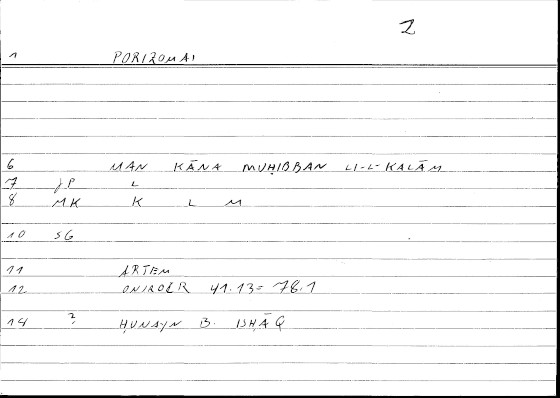 2
1 PORIZOMAI
6 MAN KĀNA MUḤIBBAN LI-L-KALĀM
7 JP L
8 MK K L M
10 SG
11 ARTEM
12 ONIROCR 41.13 = 78.1
14 ? ḤUNAYN B. ISḤĀQ